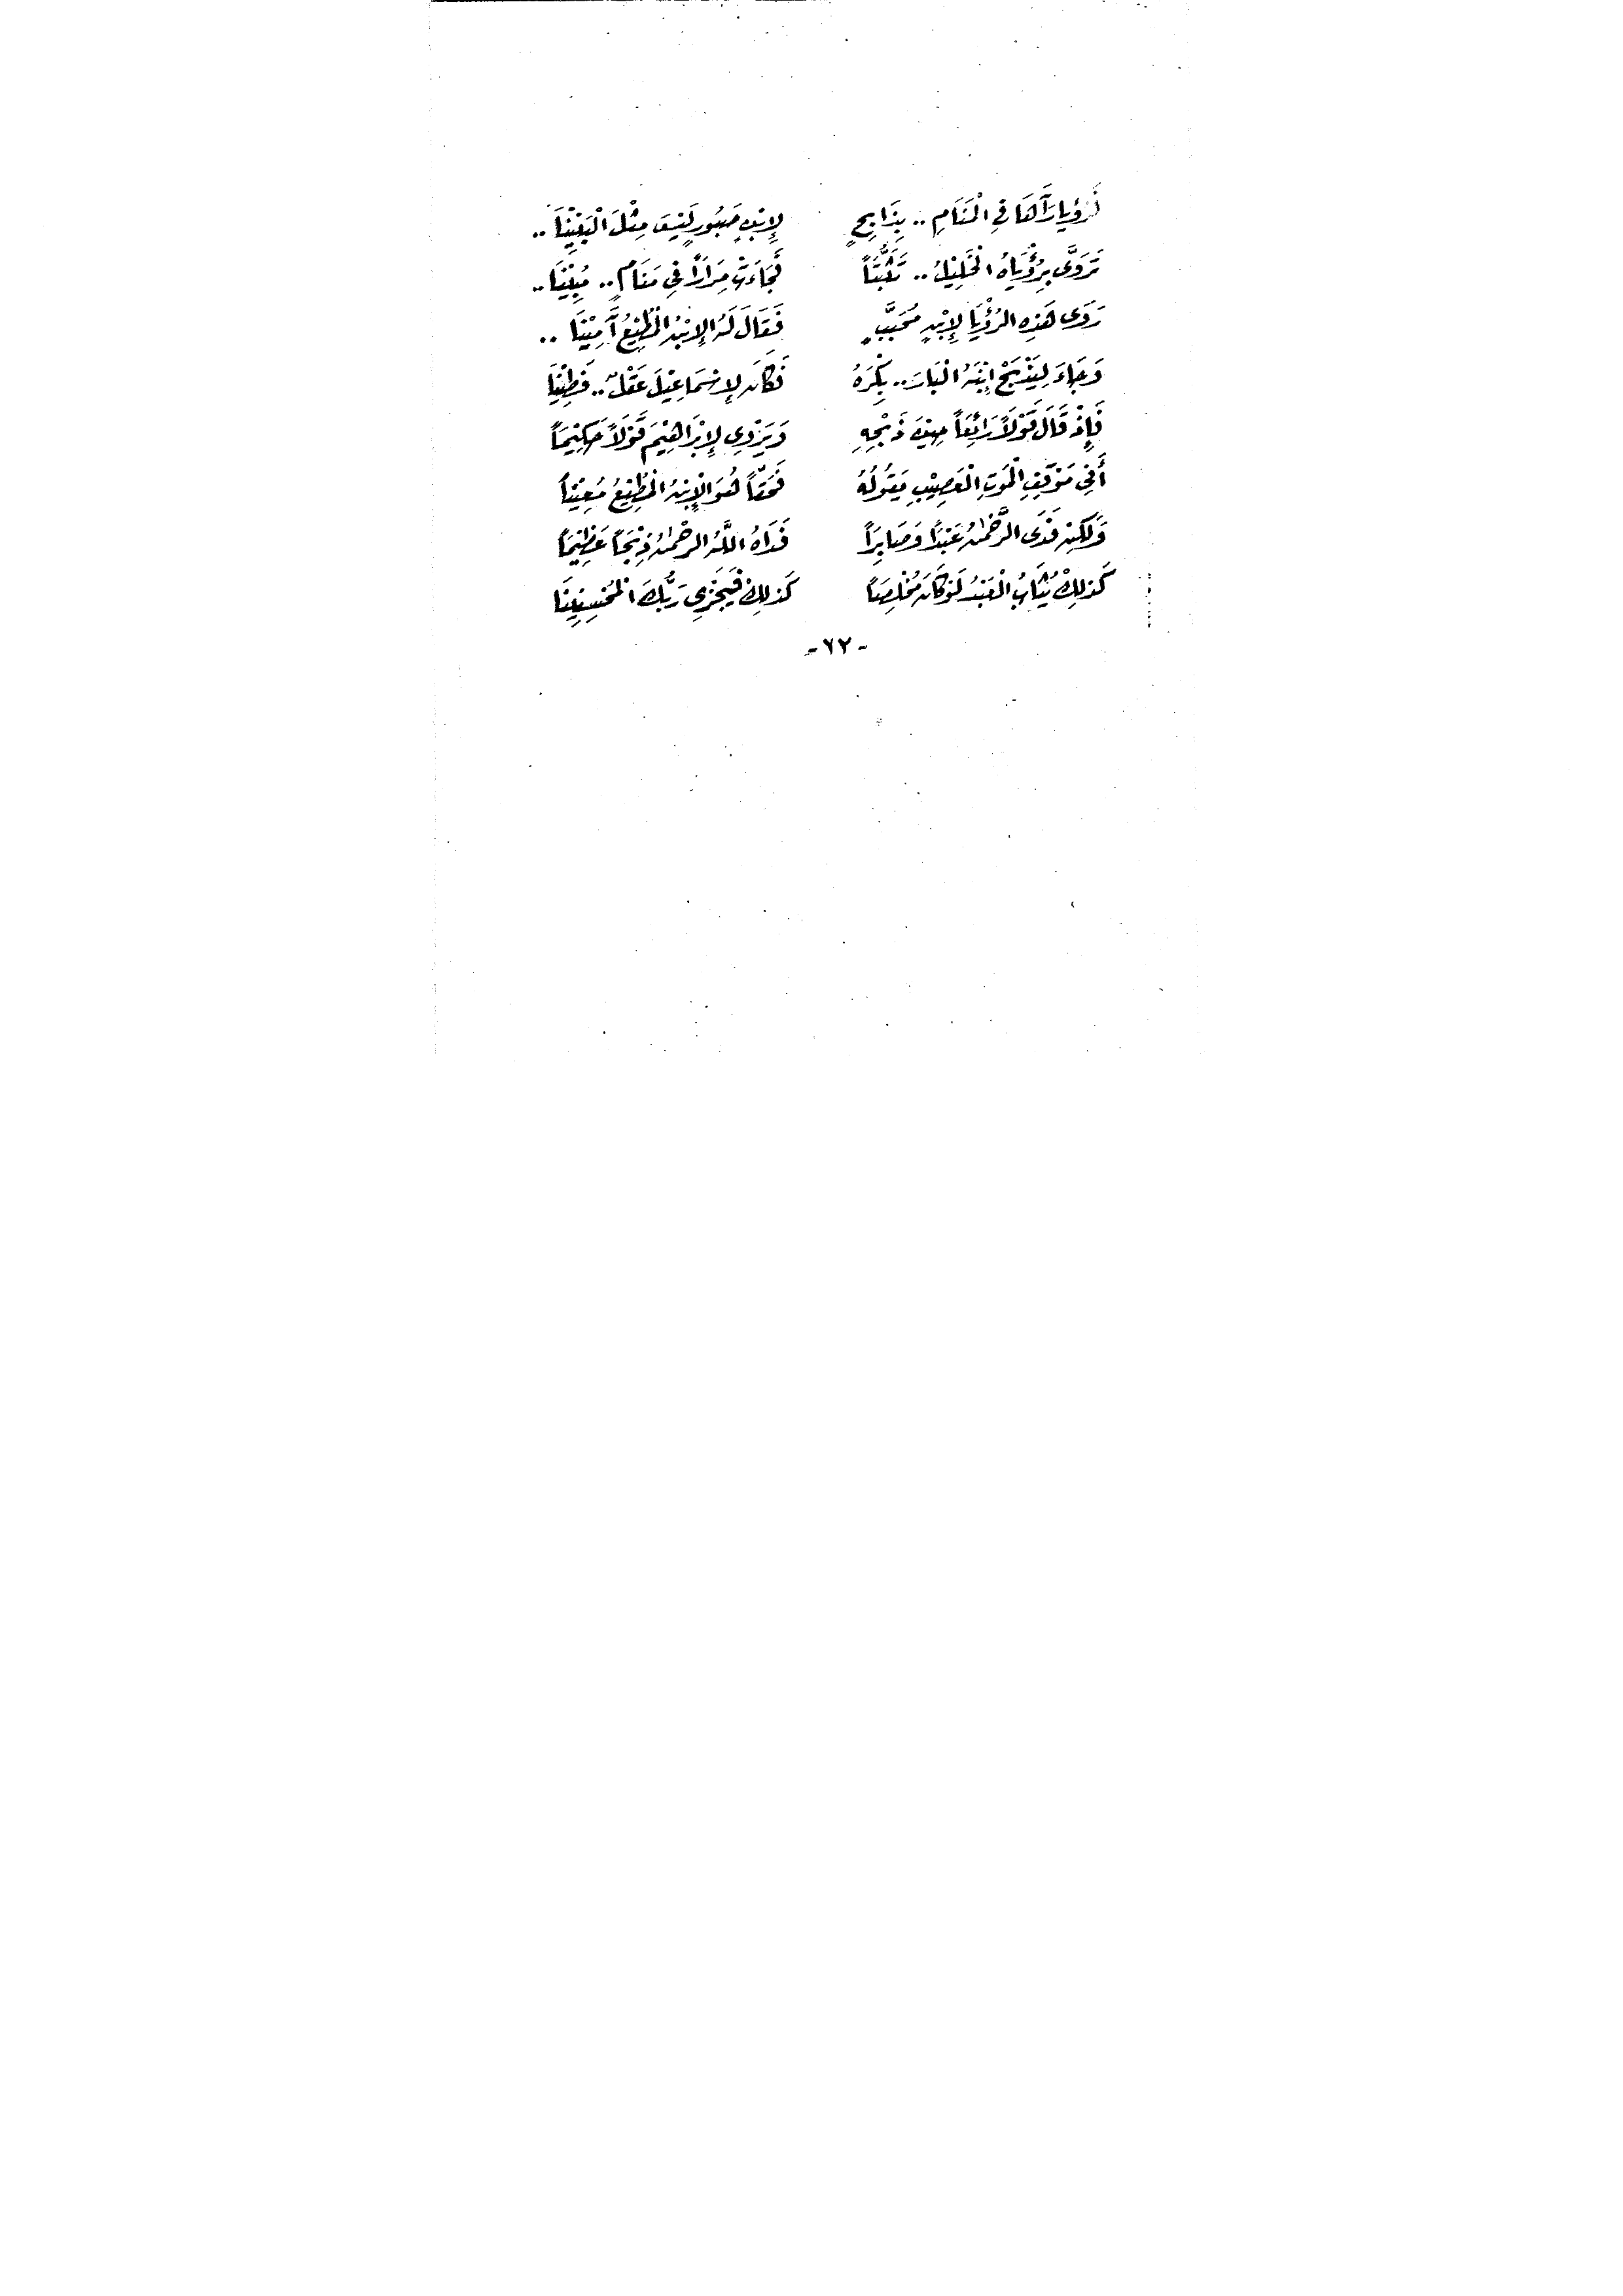 لَرُؤيا رَآهَا فِي الْمَنَامِ .. بِذَابِحٍ لِإِبْنٍ صَبُورٍ لَيْسَ مِثْلَ الْبَنِيْنَا ..
تَرَوَّى بِرُؤْيَاهُ الْخَلِيْلُ .. تَثَبُّتَاً فَجَاءَتْ مِرَارَاً فِي مَنَامٍ .. مُبِيْنَا ..
رَوَى هَذِهِ الرُؤْيَا لِإِبْنٍ مُحَبَّبٍ فَقَالَ لَهُ الإِبْنُ الْمُطِيْعُ آمِيْنَا ..
وَجَاءَ لِيَذْبَحْ إِبْنَهُ الْبَارَ .. بِكْرَهُ فَكَانَ لِإِسْمَاعِيْلَ عَقْلٌ .. فَطِيْنَا
فَإِذْ قَالَ قَوْلَاً رَائِعَاً حِيْنَ ذَبْحِهِ وَيَرْوِي لِإِبْرَاهِيْمَ قَوْلَاً حَكِيْمَاً
أَفِي مَوْقِفِ الْمَوتِ الْعَصِيْبِ يَقُولُهُ فَحَقَّاً هُوَ الْإِبْنُ الْمُطِيْعُ مُعِيْنَاً
وَلَكِنْ فَدَى الرَّحْمٰنُ عَبْدَاً وَصَابِرَاً فَدَاهُ اللَّهُ الرحْمٰنُ ذِبْحَاً عَظِيْمَاً
كَذلِكْ يُثَابُ الْعَبْدُ لَوْ كَانَ مُخْلِصَاً كَذلِكْ فَيَجْزِي رَبُّكَ الْمُحْسِنِيْنَا
- ٦٢ -